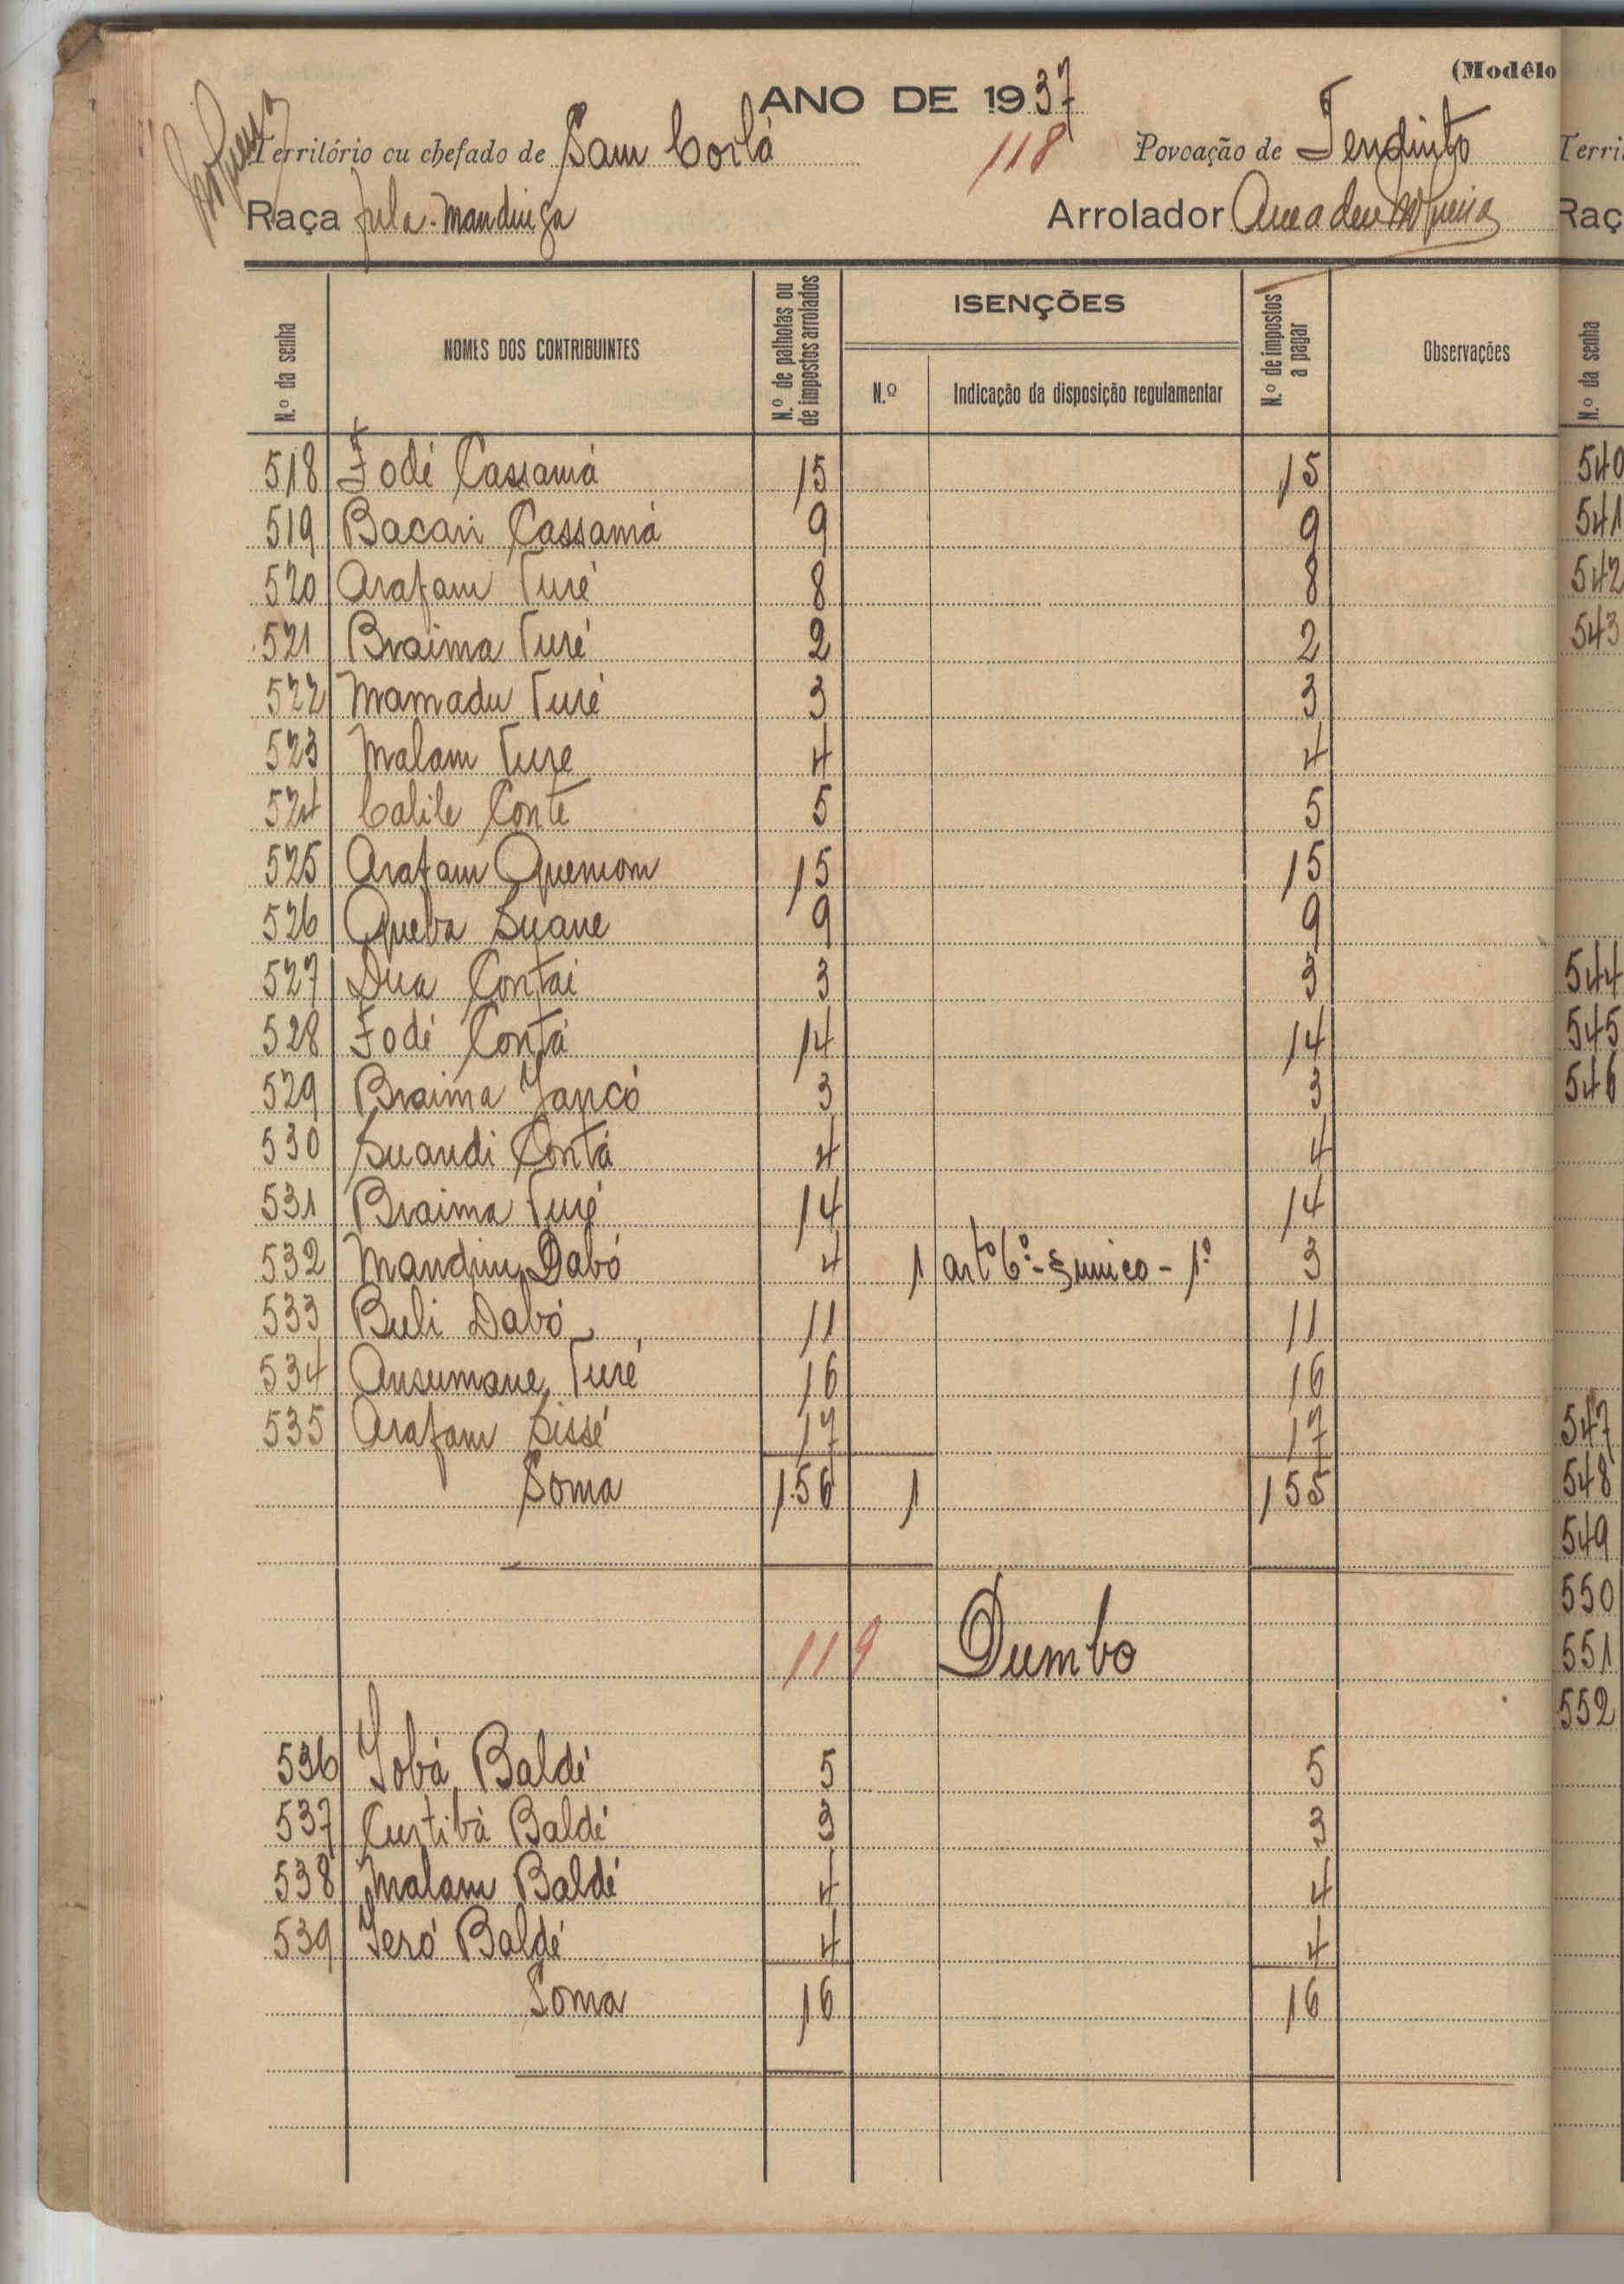 (Modêlo
ANO DE 1937
Território ou chefado de Sam Corlá 118 Povoação de Tendinto
Raça fula-mandinga Arrolador Amadeu Nogueira
N.º da senha NOMES DOS CONTRIBUINTES N.º de palhotas ou de impostos arrolados ISENÇÕES N.º Indicação da disposição regulamentar N.º de impostos a pagar Observações
518 Fodé Cassamá 15 15
519 Bacari Cassamá 9 9
520 Arafam Turé 8 8
521 Braima Turé 2 2
522 Mamadu Turé 3 3
523 Malam Ture 4 4
524 Calile Conté 5 5
525 Arafam Quemom 15 15
526 Queba Suane 9 9
527 Dua Contai 3 3
528 Fodé Contá 14 14
529 Braima Jancó 3 3
530 Suandi Contá 4 4
531 Braima Turé 14 14
532 Mandim Dabó 4 1 artº 6º - § unico - 1º 3
533 Buli Dabó 11 11
534 Ansumane Turé 16 16
535 Arafam Sissé 17 17
Soma 156 1 155
119 Dumbo
536 Iobá Baldé 5 5
537 Curtibá Baldé 3 3
538 Malam Baldé 4 4
539 Iero Baldé 4 4
Soma 16 16
Terri
Raç
N.º da senha
540
541
542
543
544
545
546
547
548
549
550
551
552